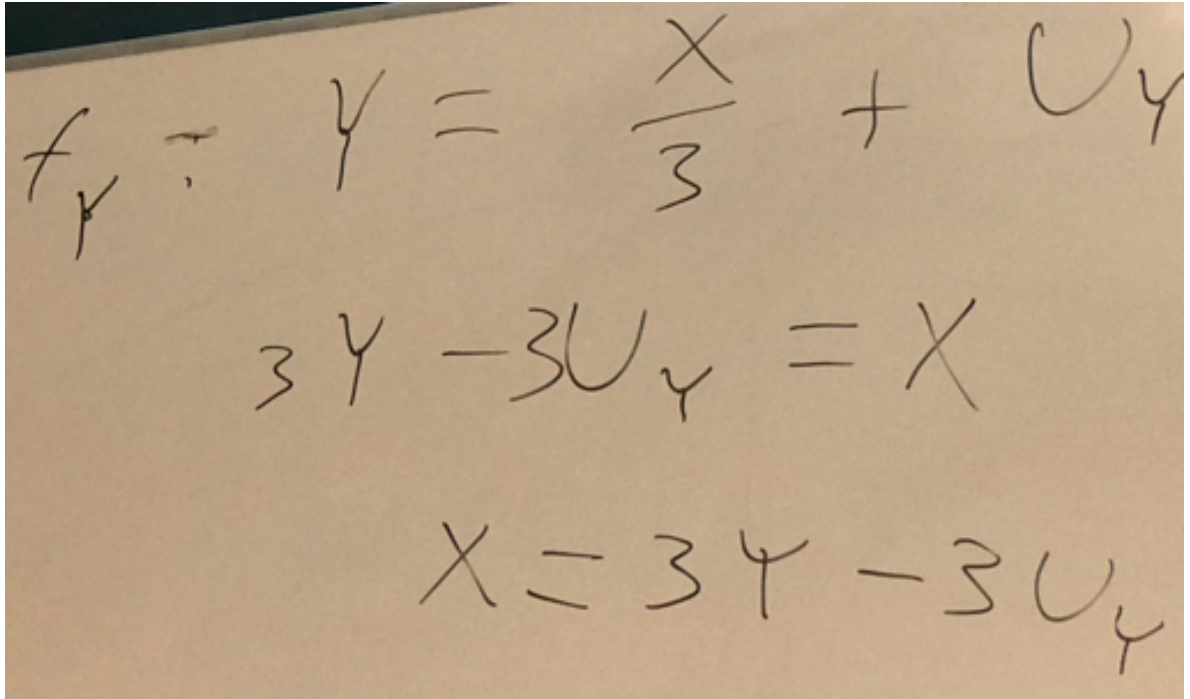 f_Y : Y = X/3 + U_Y
3Y - 3U_Y = X
X = 3Y - 3U_Y